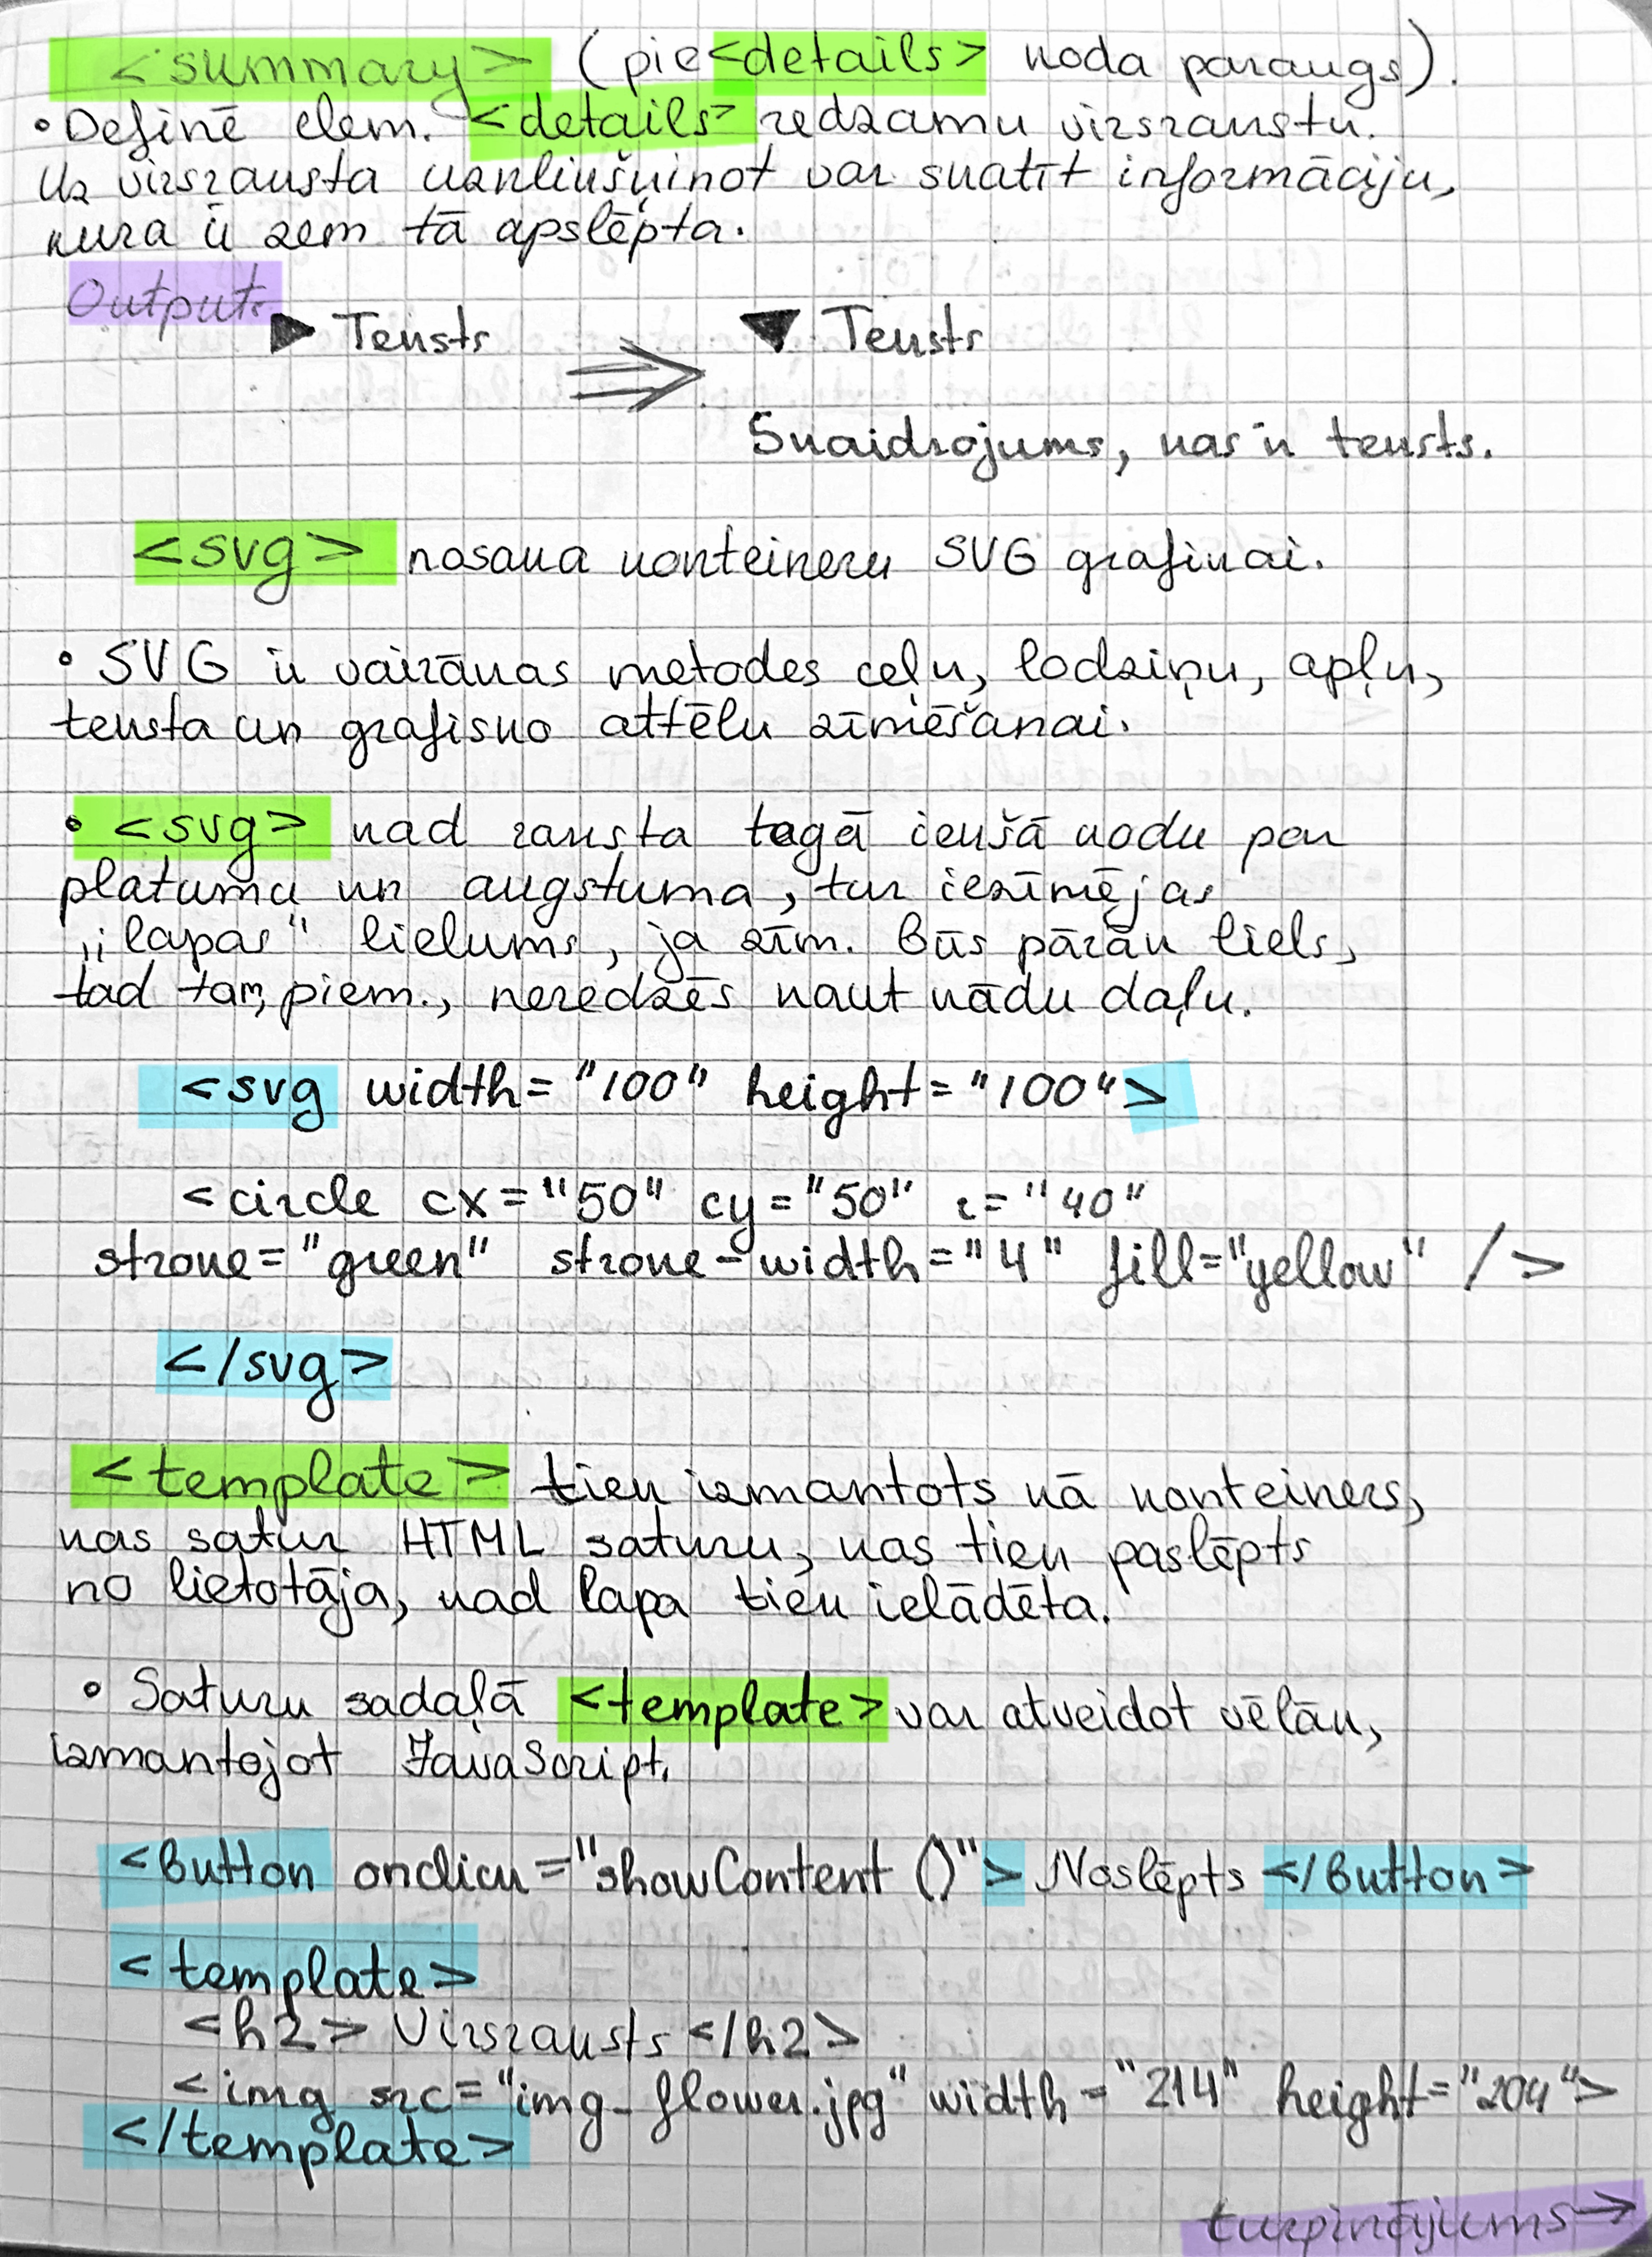 <summary> (pie <details> koda paraugs).
• Definē elem. <details> redzamu virsrakstu.
Uz virsraksta uzklikšķinot var skatīt informāciju,
kura ir zem tā apslēpta.
Output:
▶ Teksts ⇒ ▼ Teksts
Skaidrojums, kas ir teksts.
<svg> nosaka konteineru SVG grafikai.
• SVG ir vairākas metodes ceļu, lodziņu, apļu,
teksta un grafisko attēlu zīmēšanai.
• <svg> kad raksta tagā iekšā kodu par
platumu un augstuma, tur iezīmējas
"lapas" lielums, ja zīm. būs pārāk liels,
tad tam, piem., neredzēs kaut kādu daļu.
<svg width="100" height="100">
<circle cx="50" cy="50" r="40"
stroke="green" stroke-width="4" fill="yellow" />
</svg>
<template> tiek izmantots kā konteiners,
kas satur HTML saturu, kas tiek paslēpts
no lietotāja, kad lapa tiek ielādēta.
• Saturu sadaļā <template> var atveidot vēlāk,
izmantojot JavaScript.
<button onclick="showContent ()"> Noslēpts </button>
<template>
<h2> Virsraksts </h2>
<img src="img_flower.jpg" width="214" height="204">
</template>
turpinājums →